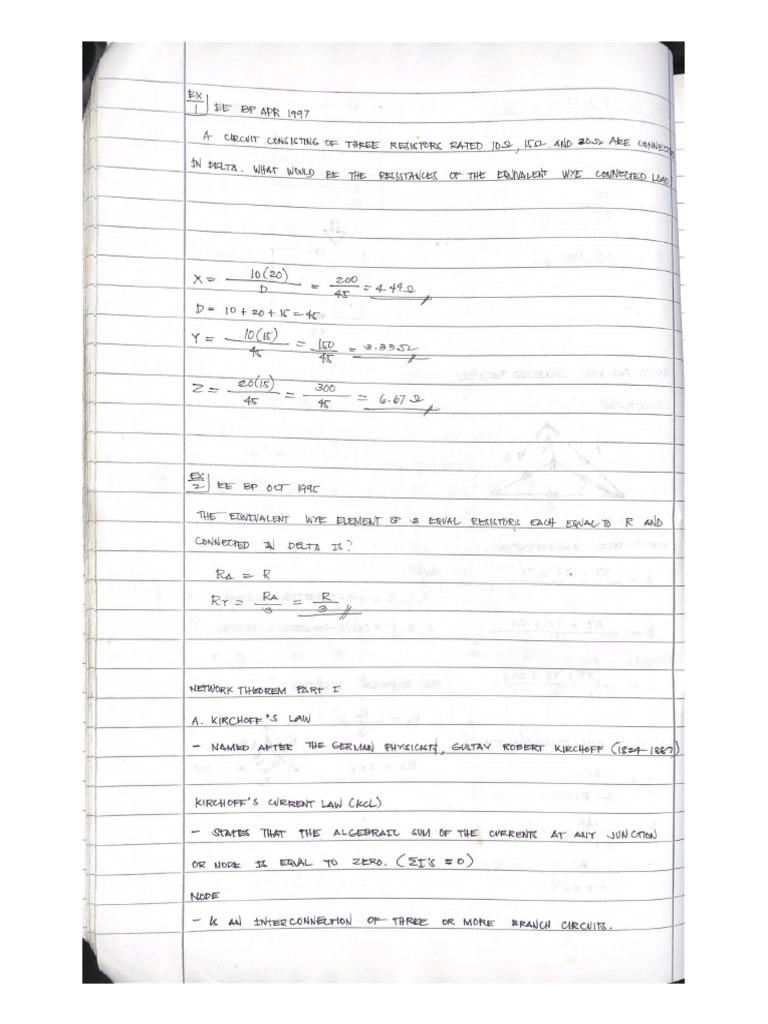 EX 1 EE BP APR 1997
A CIRCUIT CONSISTING OF THREE RESISTORS RATED 10Ω, 15Ω AND 20Ω ARE CONNECTED
IN DELTA. WHAT WOULD BE THE RESISTANCES OF THE EQUIVALENT WYE CONNECTED LOAD
X = 10(20) / D = 200 / 45 = 4.44Ω
D = 10 + 20 + 15 = 45
Y = 10(15) / 45 = 150 / 45 = 3.33Ω
Z = 20(15) / 45 = 300 / 45 = 6.67Ω
EX 2 EE BP OCT 1995
THE EQUIVALENT WYE ELEMENT OF 3 EQUAL RESISTORS EACH EQUAL TO R AND
CONNECTED IN DELTA IS?
RΔ = R
RY = RΔ / 3 = R / 3
NETWORK THEOREM PART I
A. KIRCHOFF'S LAW
- NAMED AFTER THE GERMAN PHYSICIST, GUSTAV ROBERT KIRCHOFF (1824-1887)
KIRCHOFF'S CURRENT LAW (KCL)
- STATES THAT THE ALGEBRAIC SUM OF THE CURRENTS AT ANY JUNCTION
OR NODE IS EQUAL TO ZERO. (ΣI's = 0)
NODE
- IS AN INTERCONNECTION OF THREE OR MORE BRANCH CIRCUITS.